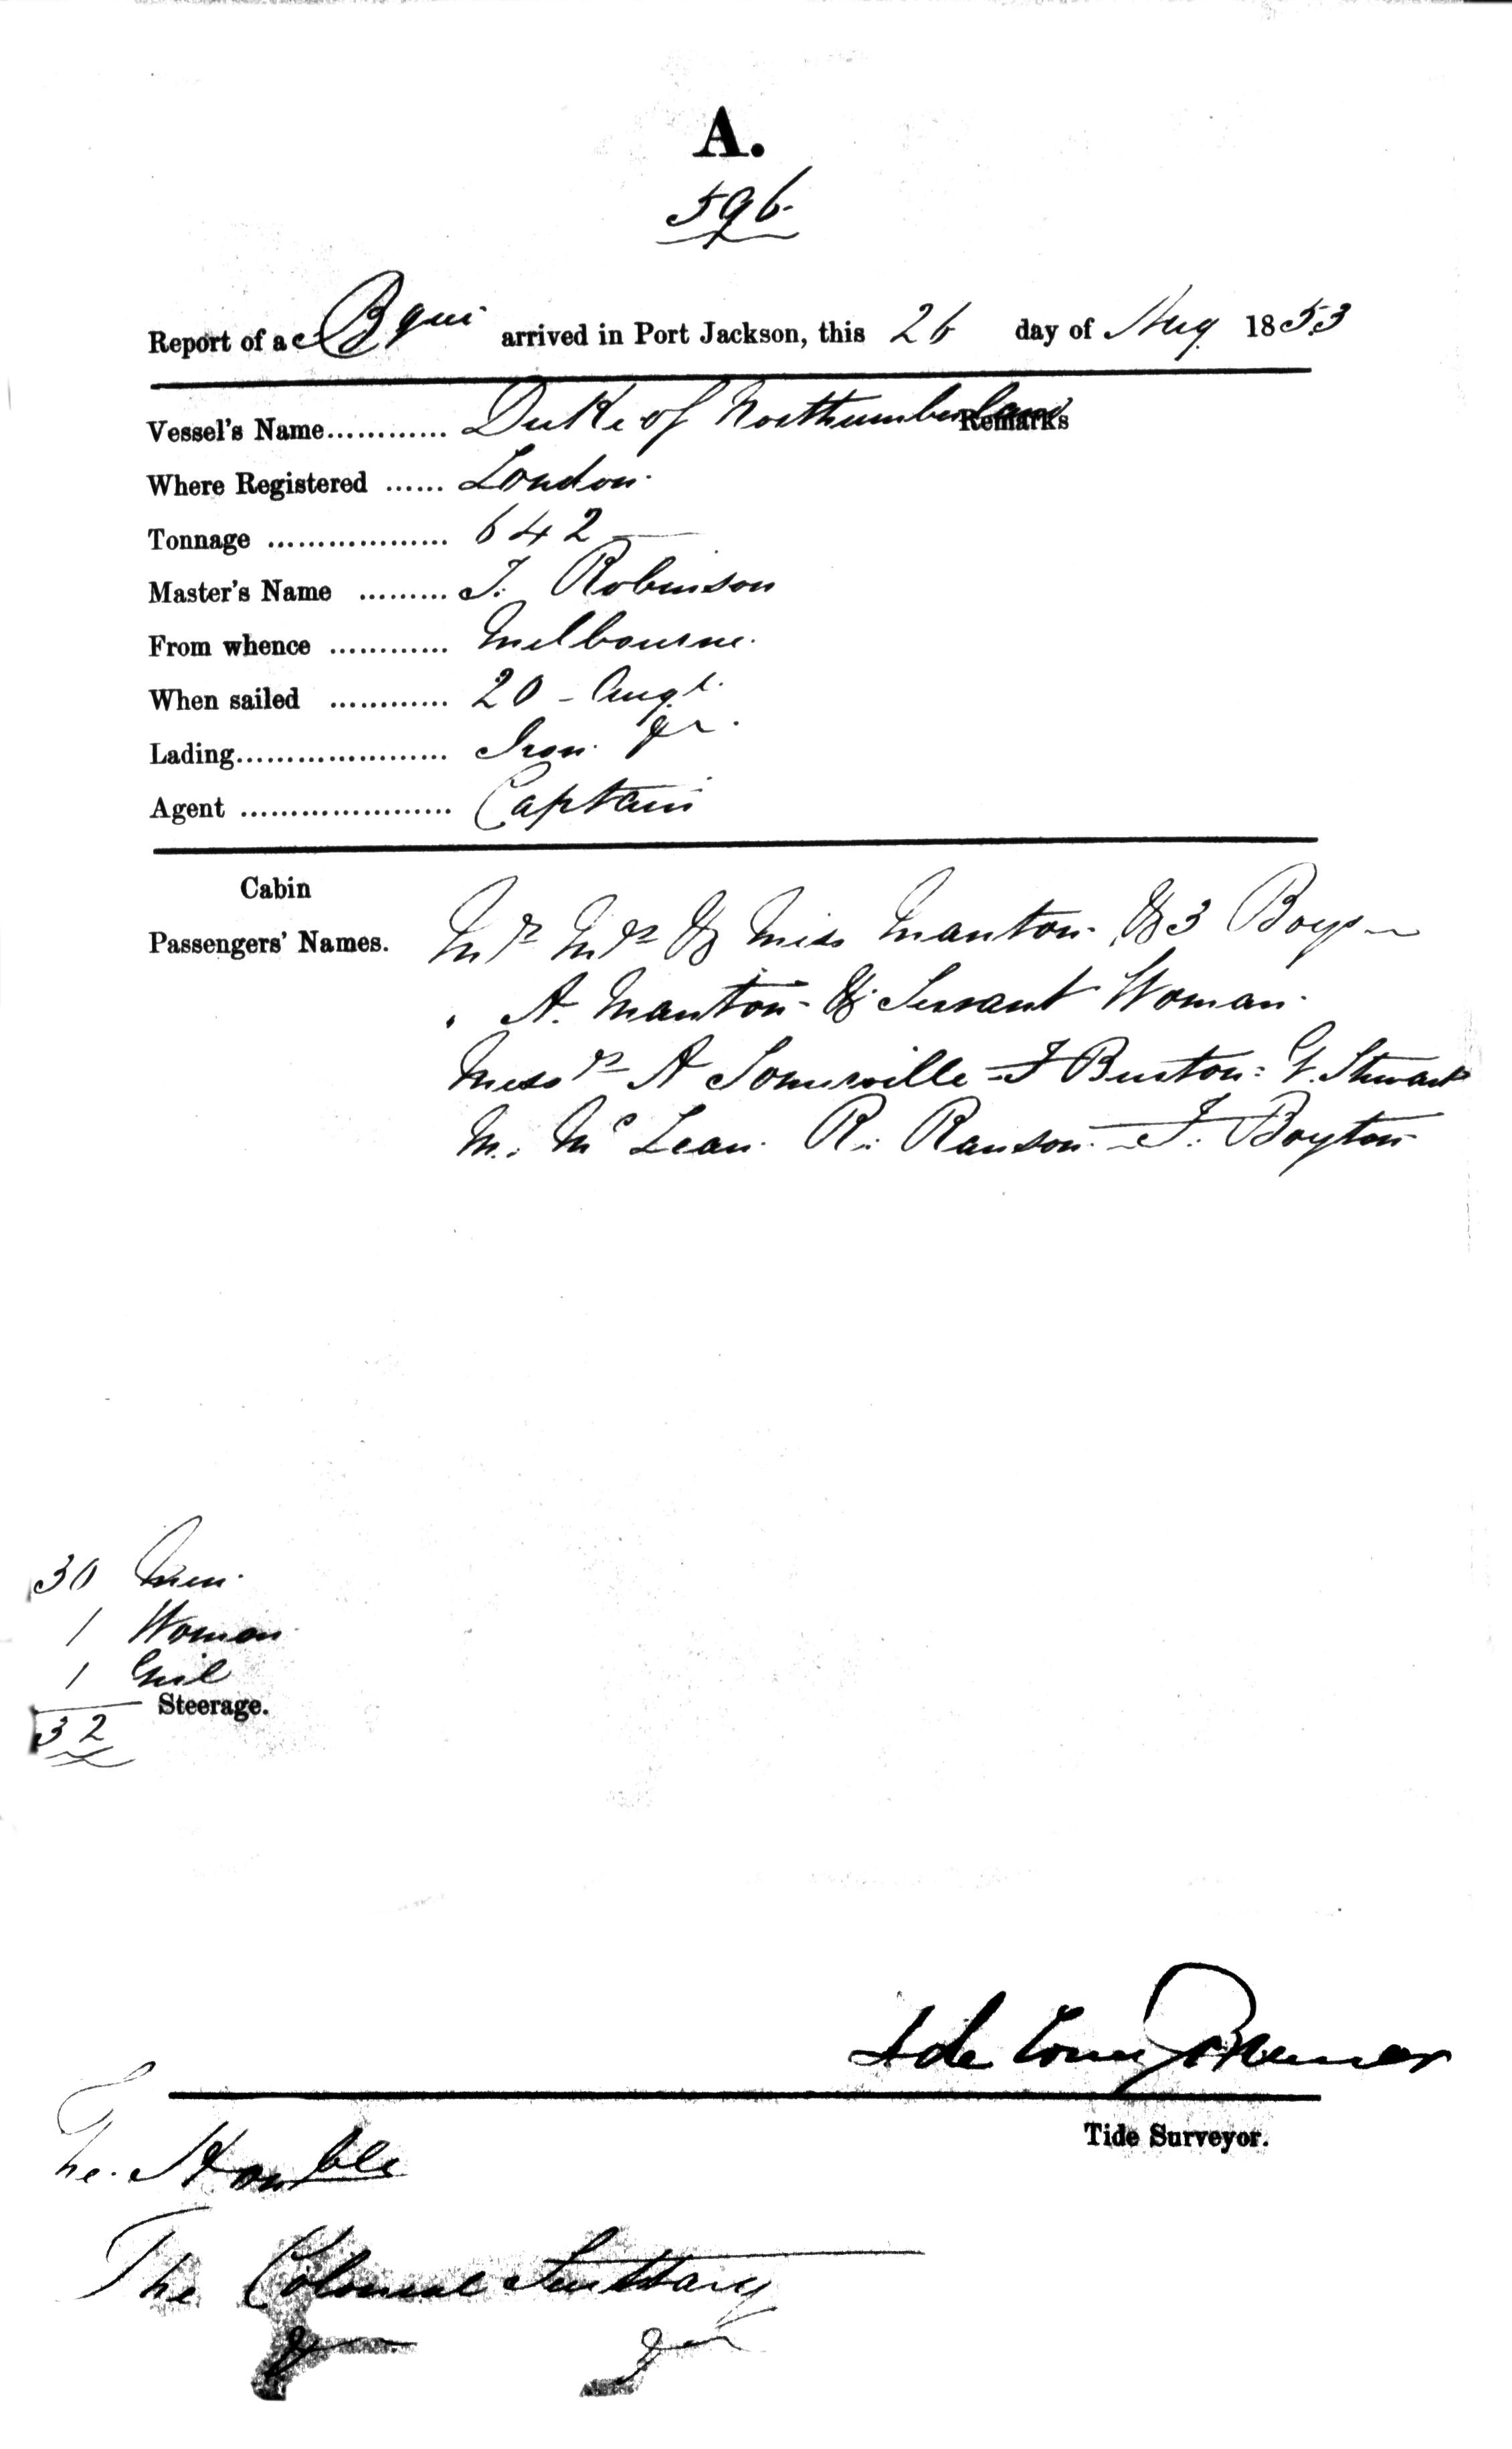 A.
596
Report of a Bque arrived in Port Jackson, this 26 day of Aug 1853
Vessel's Name............ Duke of Northumberland Remarks
Where Registered ...... London.
Tonnage .................. 642
Master's Name ......... J. Robinson
From whence ............ Melbourne.
When sailed ............ 20 - Augt.
Lading..................... Iron. &c.
Agent ..................... Captain
Cabin
Passengers' Names. Mr Mrs & Miss Manton. & 3 Boys
" A. Manton - & Servant Woman.
Messrs A Somerville - F Burton = G. Stewart
M. Mc Lean. R. Ranson - J. Boyton
30 Men.
1 Woman
1 Girl
Steerage.
32
Tide Surveyor.
The Honble
The Colonial Secretary
&c &c